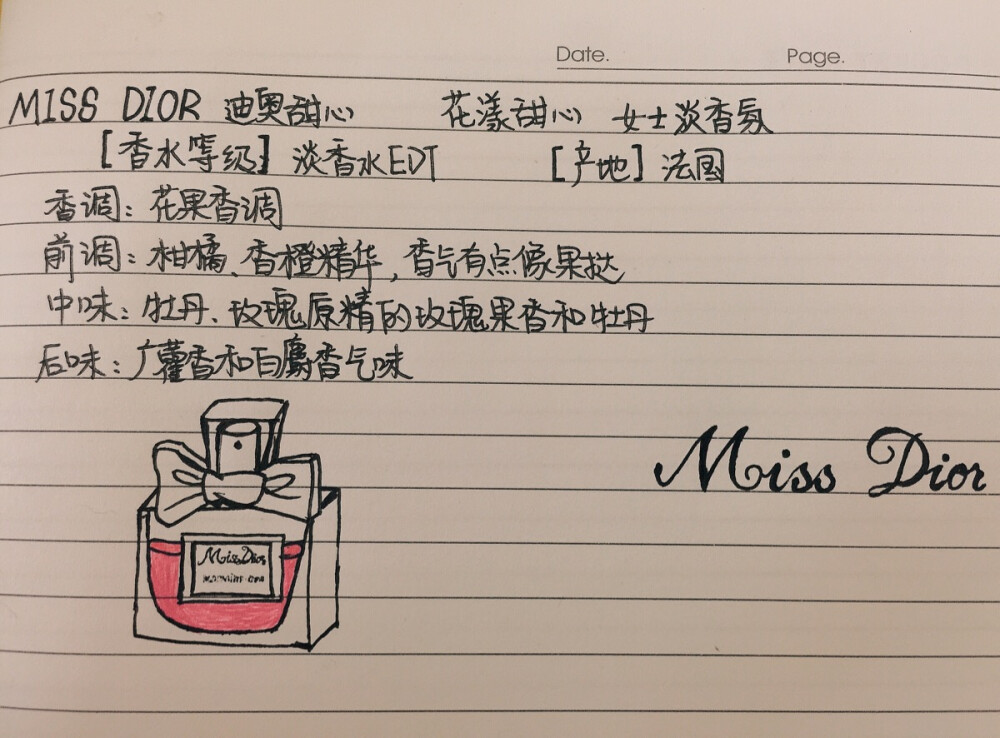 Date. Page.
MISS DIOR 迪奥甜心 花漾甜心 女士淡香氛
[香水等级] 淡香水EDT [产地] 法国
香调：花果香调
前调：柑橘、香橙精华，香气有点像果挞
中味：牡丹、玫瑰原精的玫瑰果香和牡丹
后味：广藿香和白麝香气味
Miss Dior
Miss Dior